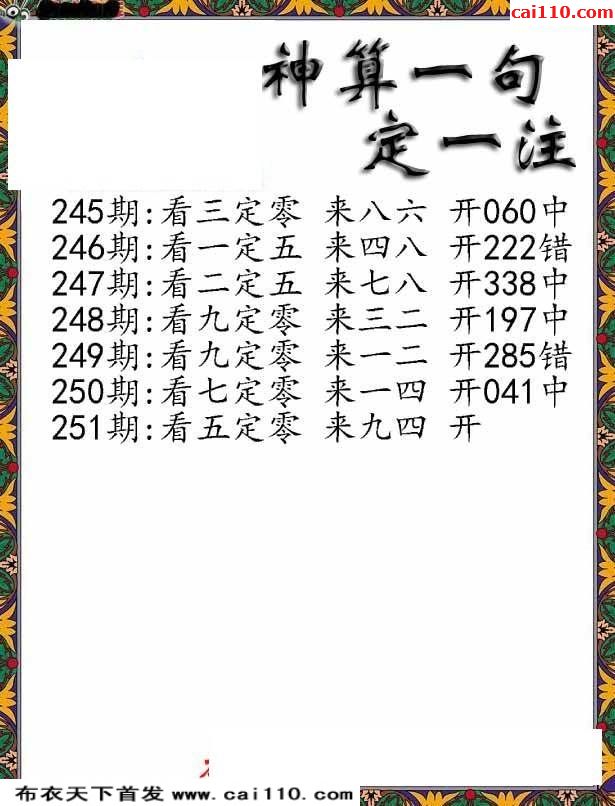 cai110.com
神算一句
定一注
245期:看三定零 来八六 开060中
246期:看一定五 来四八 开222错
247期:看二定五 来七八 开338中
248期:看九定零 来三二 开197中
249期:看九定零 来一二 开285错
250期:看七定零 来一四 开041中
251期:看五定零 来九四 开
布衣天下首发 www.cai110.com